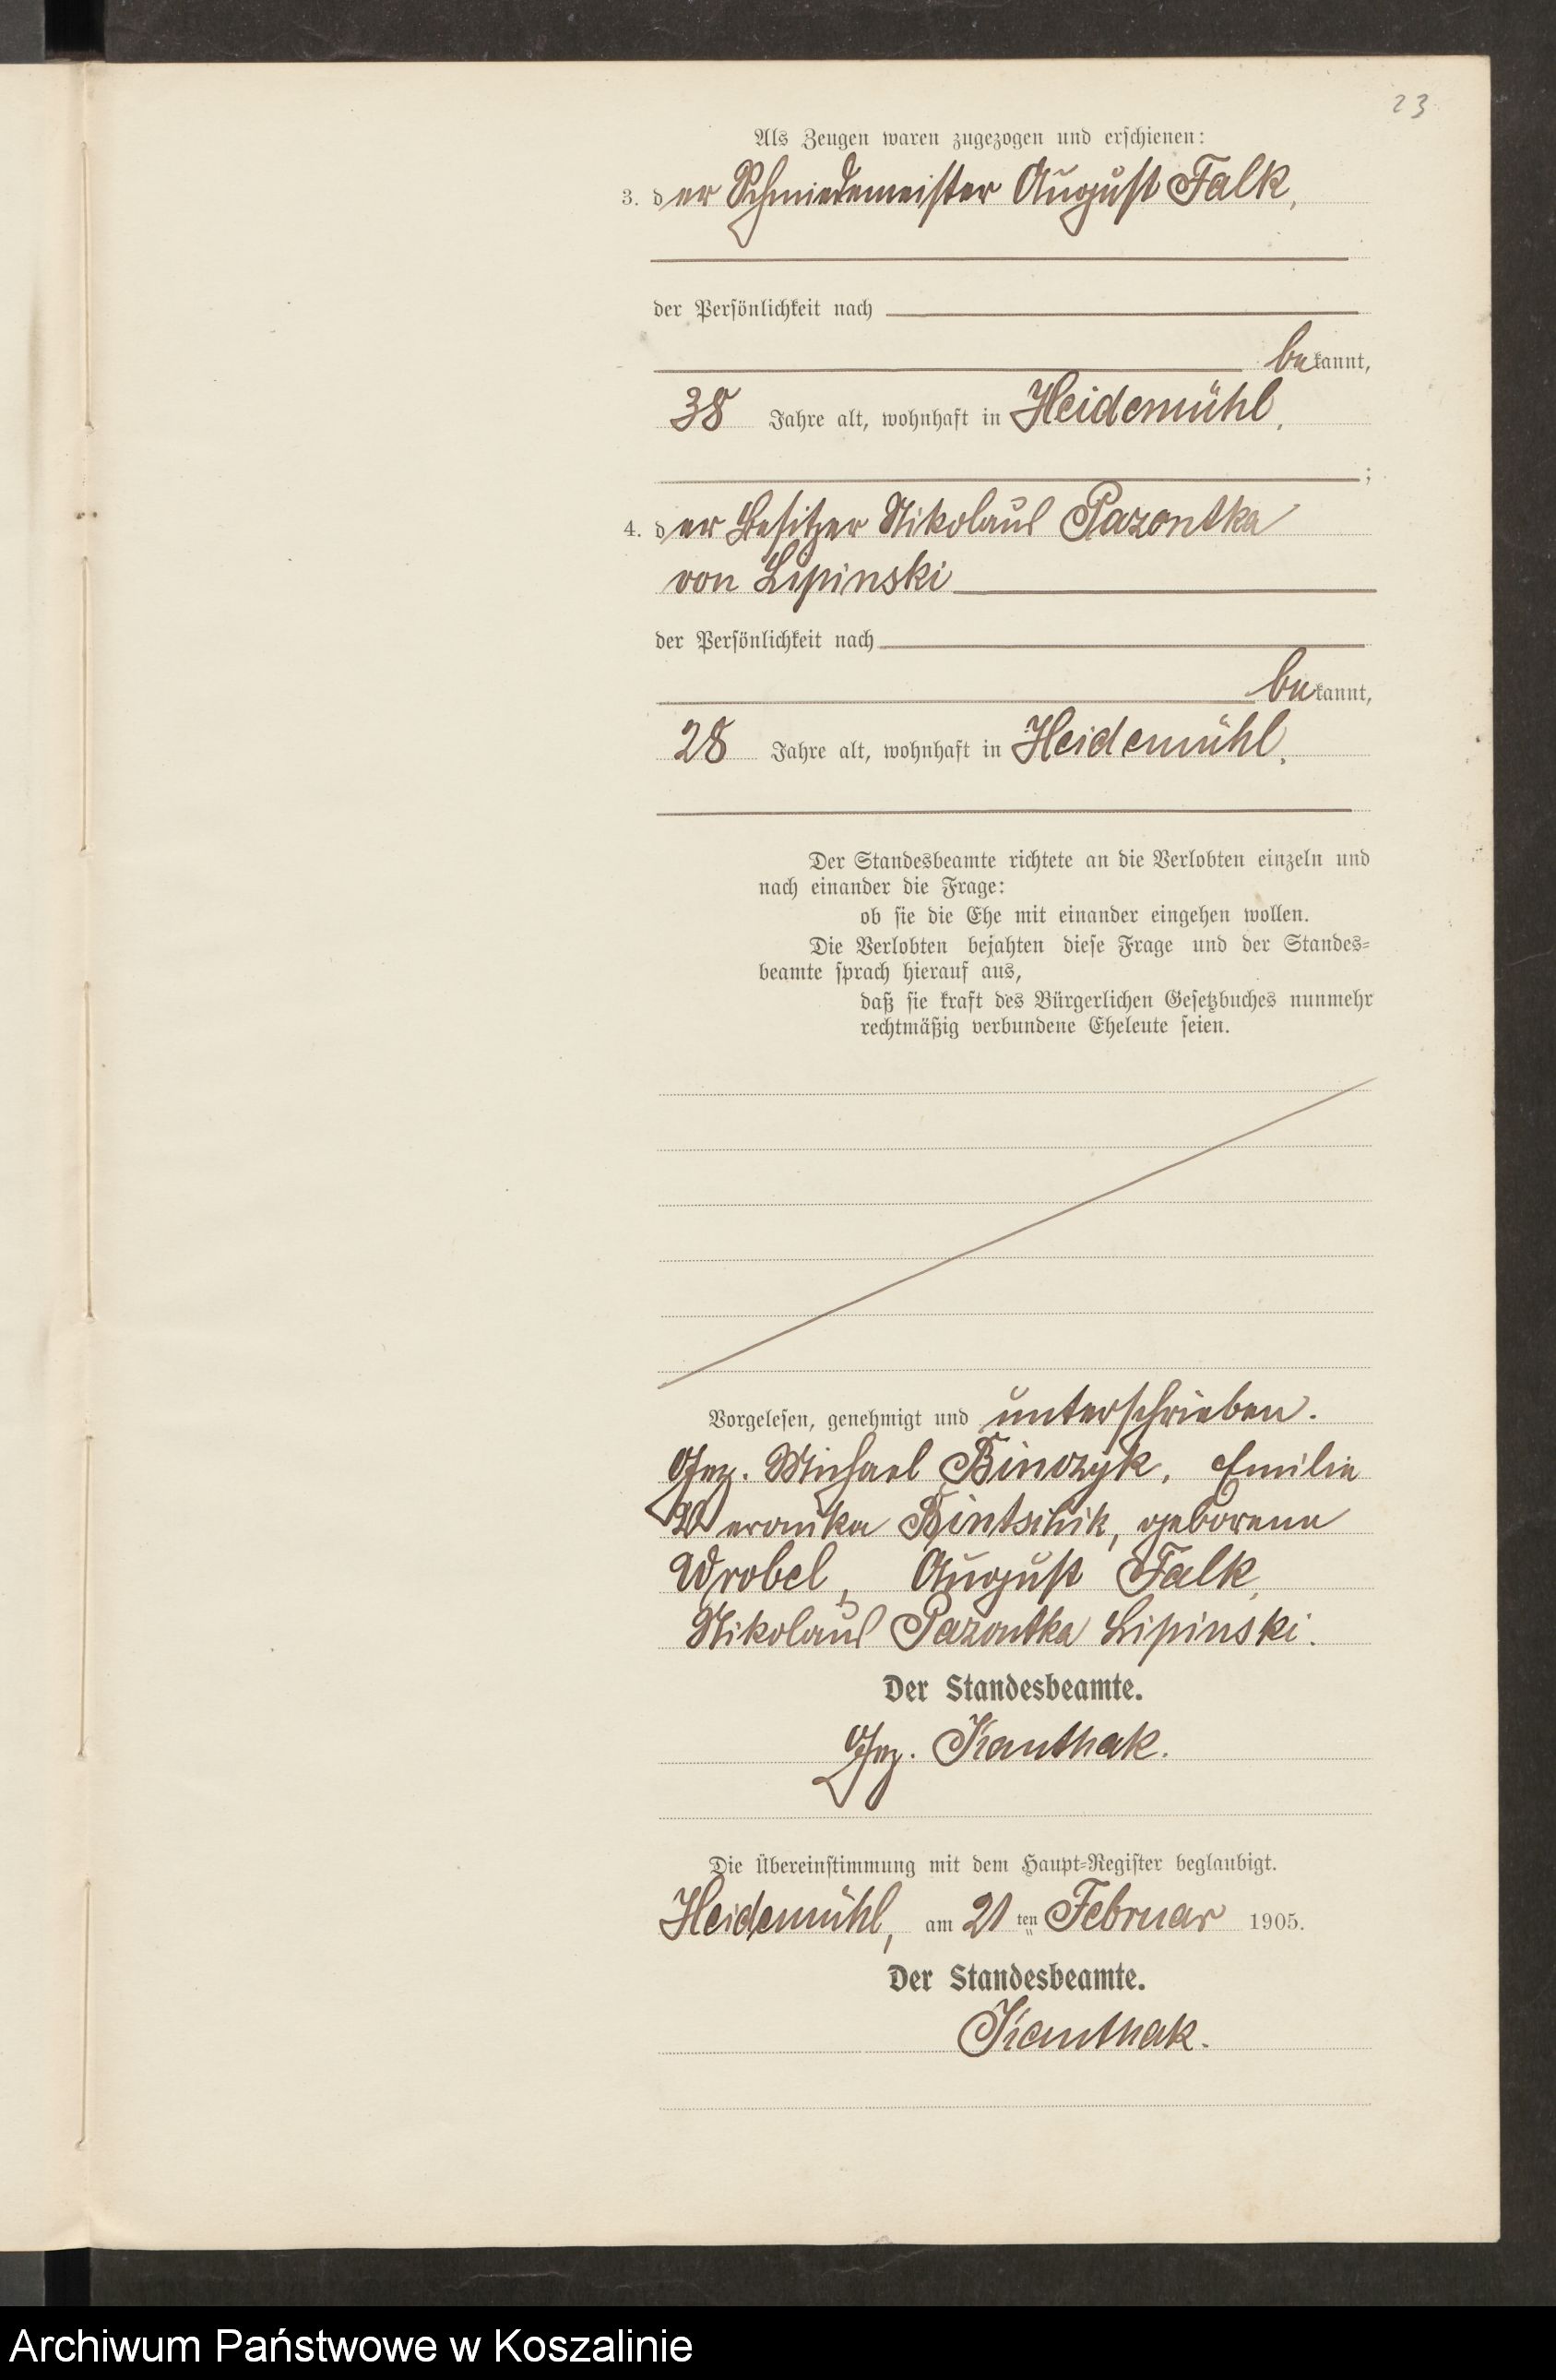 23
Als Zeugen waren zugezogen und erschienen:
3. der Schmiedemeister August Falk,
der Persönlichkeit nach
bekannt,
38 Jahre alt, wohnhaft in Heidemühl,
;
4. der Besitzer Nikolaus Pazontka
von Lipinski
der Persönlichkeit nach
bekannt,
28 Jahre alt, wohnhaft in Heidemühl.
Der Standesbeamte richtete an die Verlobten einzeln und
nach einander die Frage:
ob sie die Ehe mit einander eingehen wollen.
Die Verlobten bejahten diese Frage und der Standes-
beamte sprach hierauf aus,
daß sie kraft des Bürgerlichen Gesetzbuches nunmehr
rechtmäßig verbundene Eheleute seien.
Vorgelesen, genehmigt und unterschrieben.
Gez. Michael Binczyk, Emilie
Weronika Bintschik, geborene
Wrobel, August Falk,
Nikolaus Pazontka Lipinski.
Der Standesbeamte.
Gez. Kanthak.
Die Übereinstimmung mit dem Haupt-Register beglaubigt.
Heidemühl, am 21ten Februar 1905.
Der Standesbeamte.
Kanthak.
Archiwum Państwowe w Koszalinie